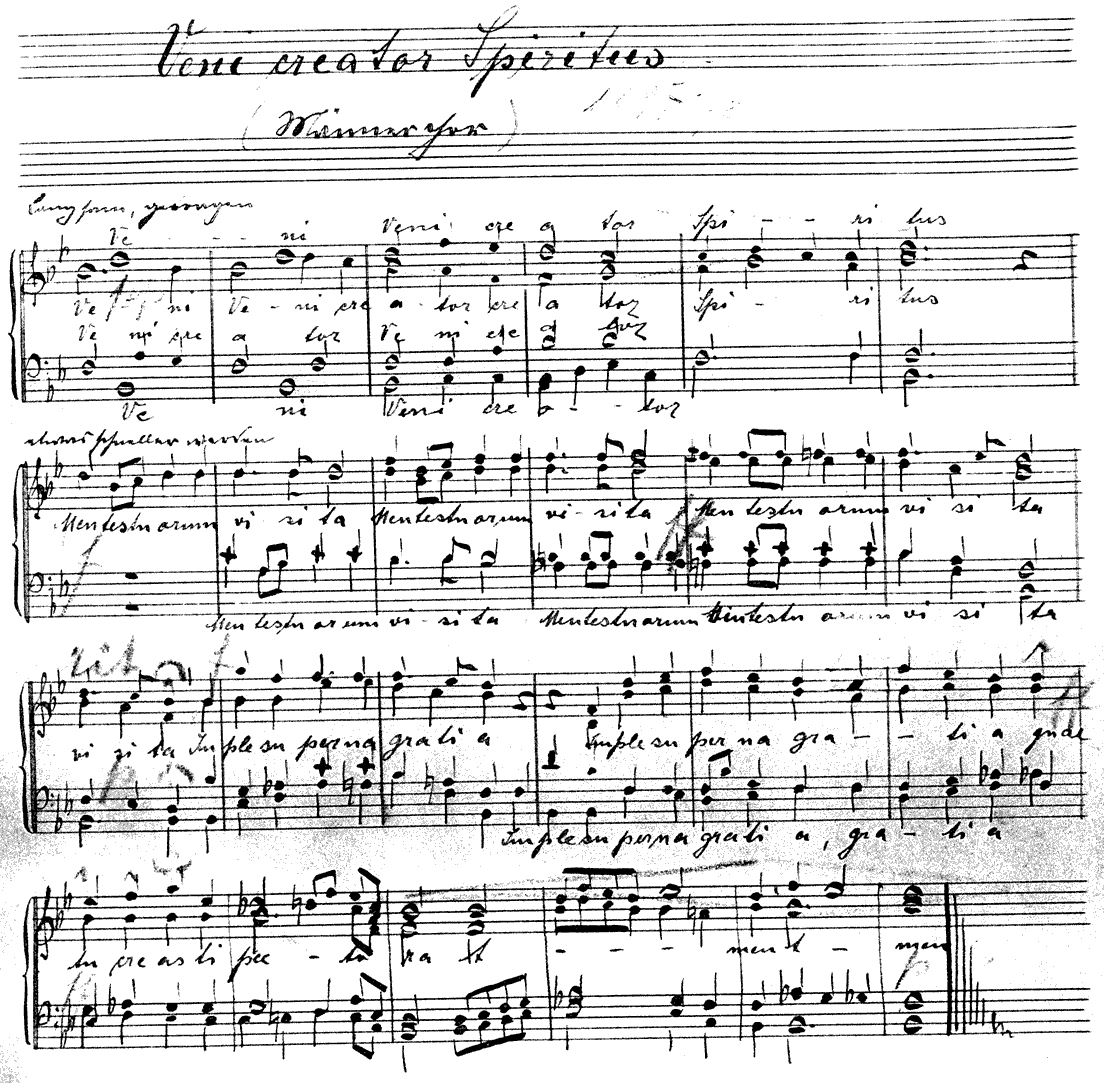 Veni creator Spiritus
(Männerchor)
Langsam, getragen
Ve - - ni Veni cre a tor Spi - - ri tus
Ve ni Ve - ni cre a - tor cre a tor Spi - ri tus
Ve ni cre a tor Ve ni cre a tor
Ve ni Veni cre a - - tor
etwas schneller werden
Mentestuorum vi si ta Mentestuorum vi - si ta Mentestuorum vi si ta
Mentestuorum vi - si ta Mentestuorum Mentestuorum vi si ta
rit
vi si ta Imple su perna grati a Imple su per na gra - - ti a quae
Imple su perna grati a, gra - ti a
tu cre as ti pec - to ra - - - - men -